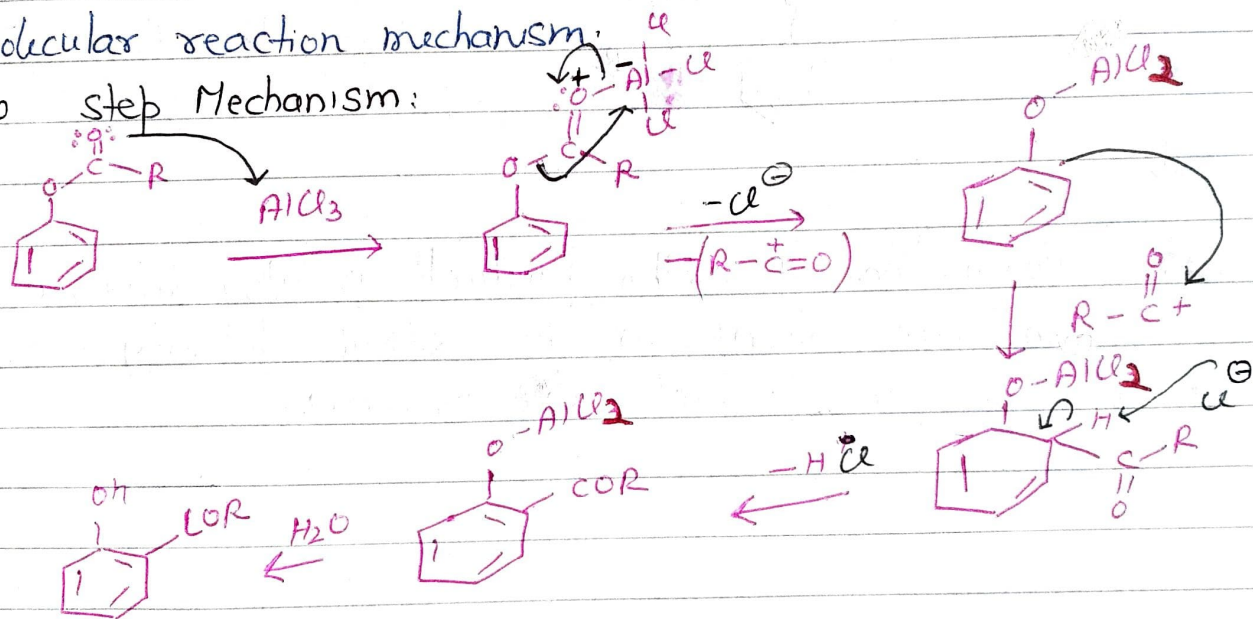 olecular reaction mechanism.
step Mechanism:
:O:
C
R
O
AlCl3
+
:O
-
Al
Cl
Cl
Cl
O
C
R
-Cl⊖
-(R-C+=O)
O
AlCl2
O
R-C+
O-AlCl2
H
Cl⊖
C
R
O
-HCl
O-AlCl2
COR
H2O
OH
COR